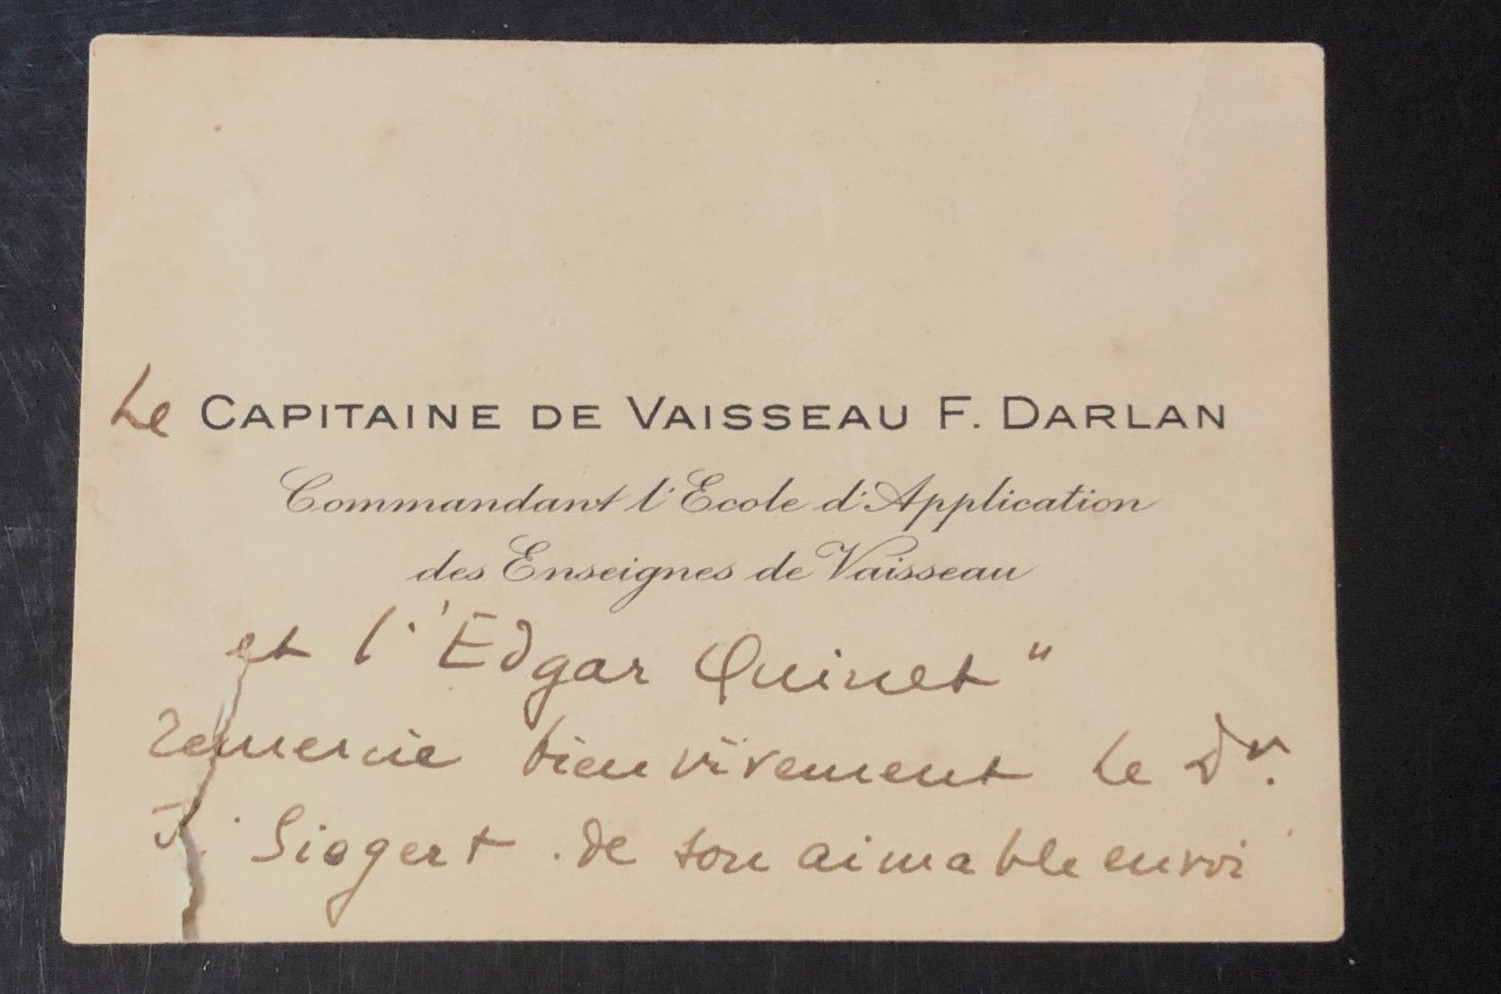 Le CAPITAINE DE VAISSEAU F. DARLAN
Commandant l'Ecole d'Application
des Enseignes de Vaisseau
et l'"Edgar Quinet"
remercie bien vivement le Dr.
J. Siegert de son aimable envoi